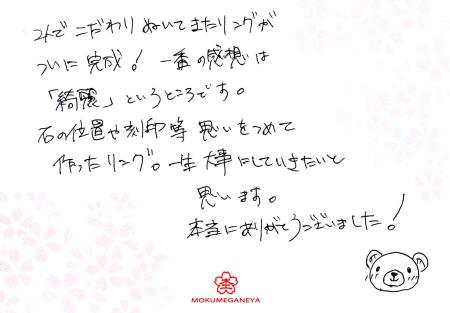 2人でこだわりぬいてきたリングが
ついに完成！一番の感想は
「綺麗」というところです。
石の位置や刻印等 思いをつめて
作ったリング。一生大事にしていきたいと
思います。
本当にありがとうございました！
MOKUMEGANEYA